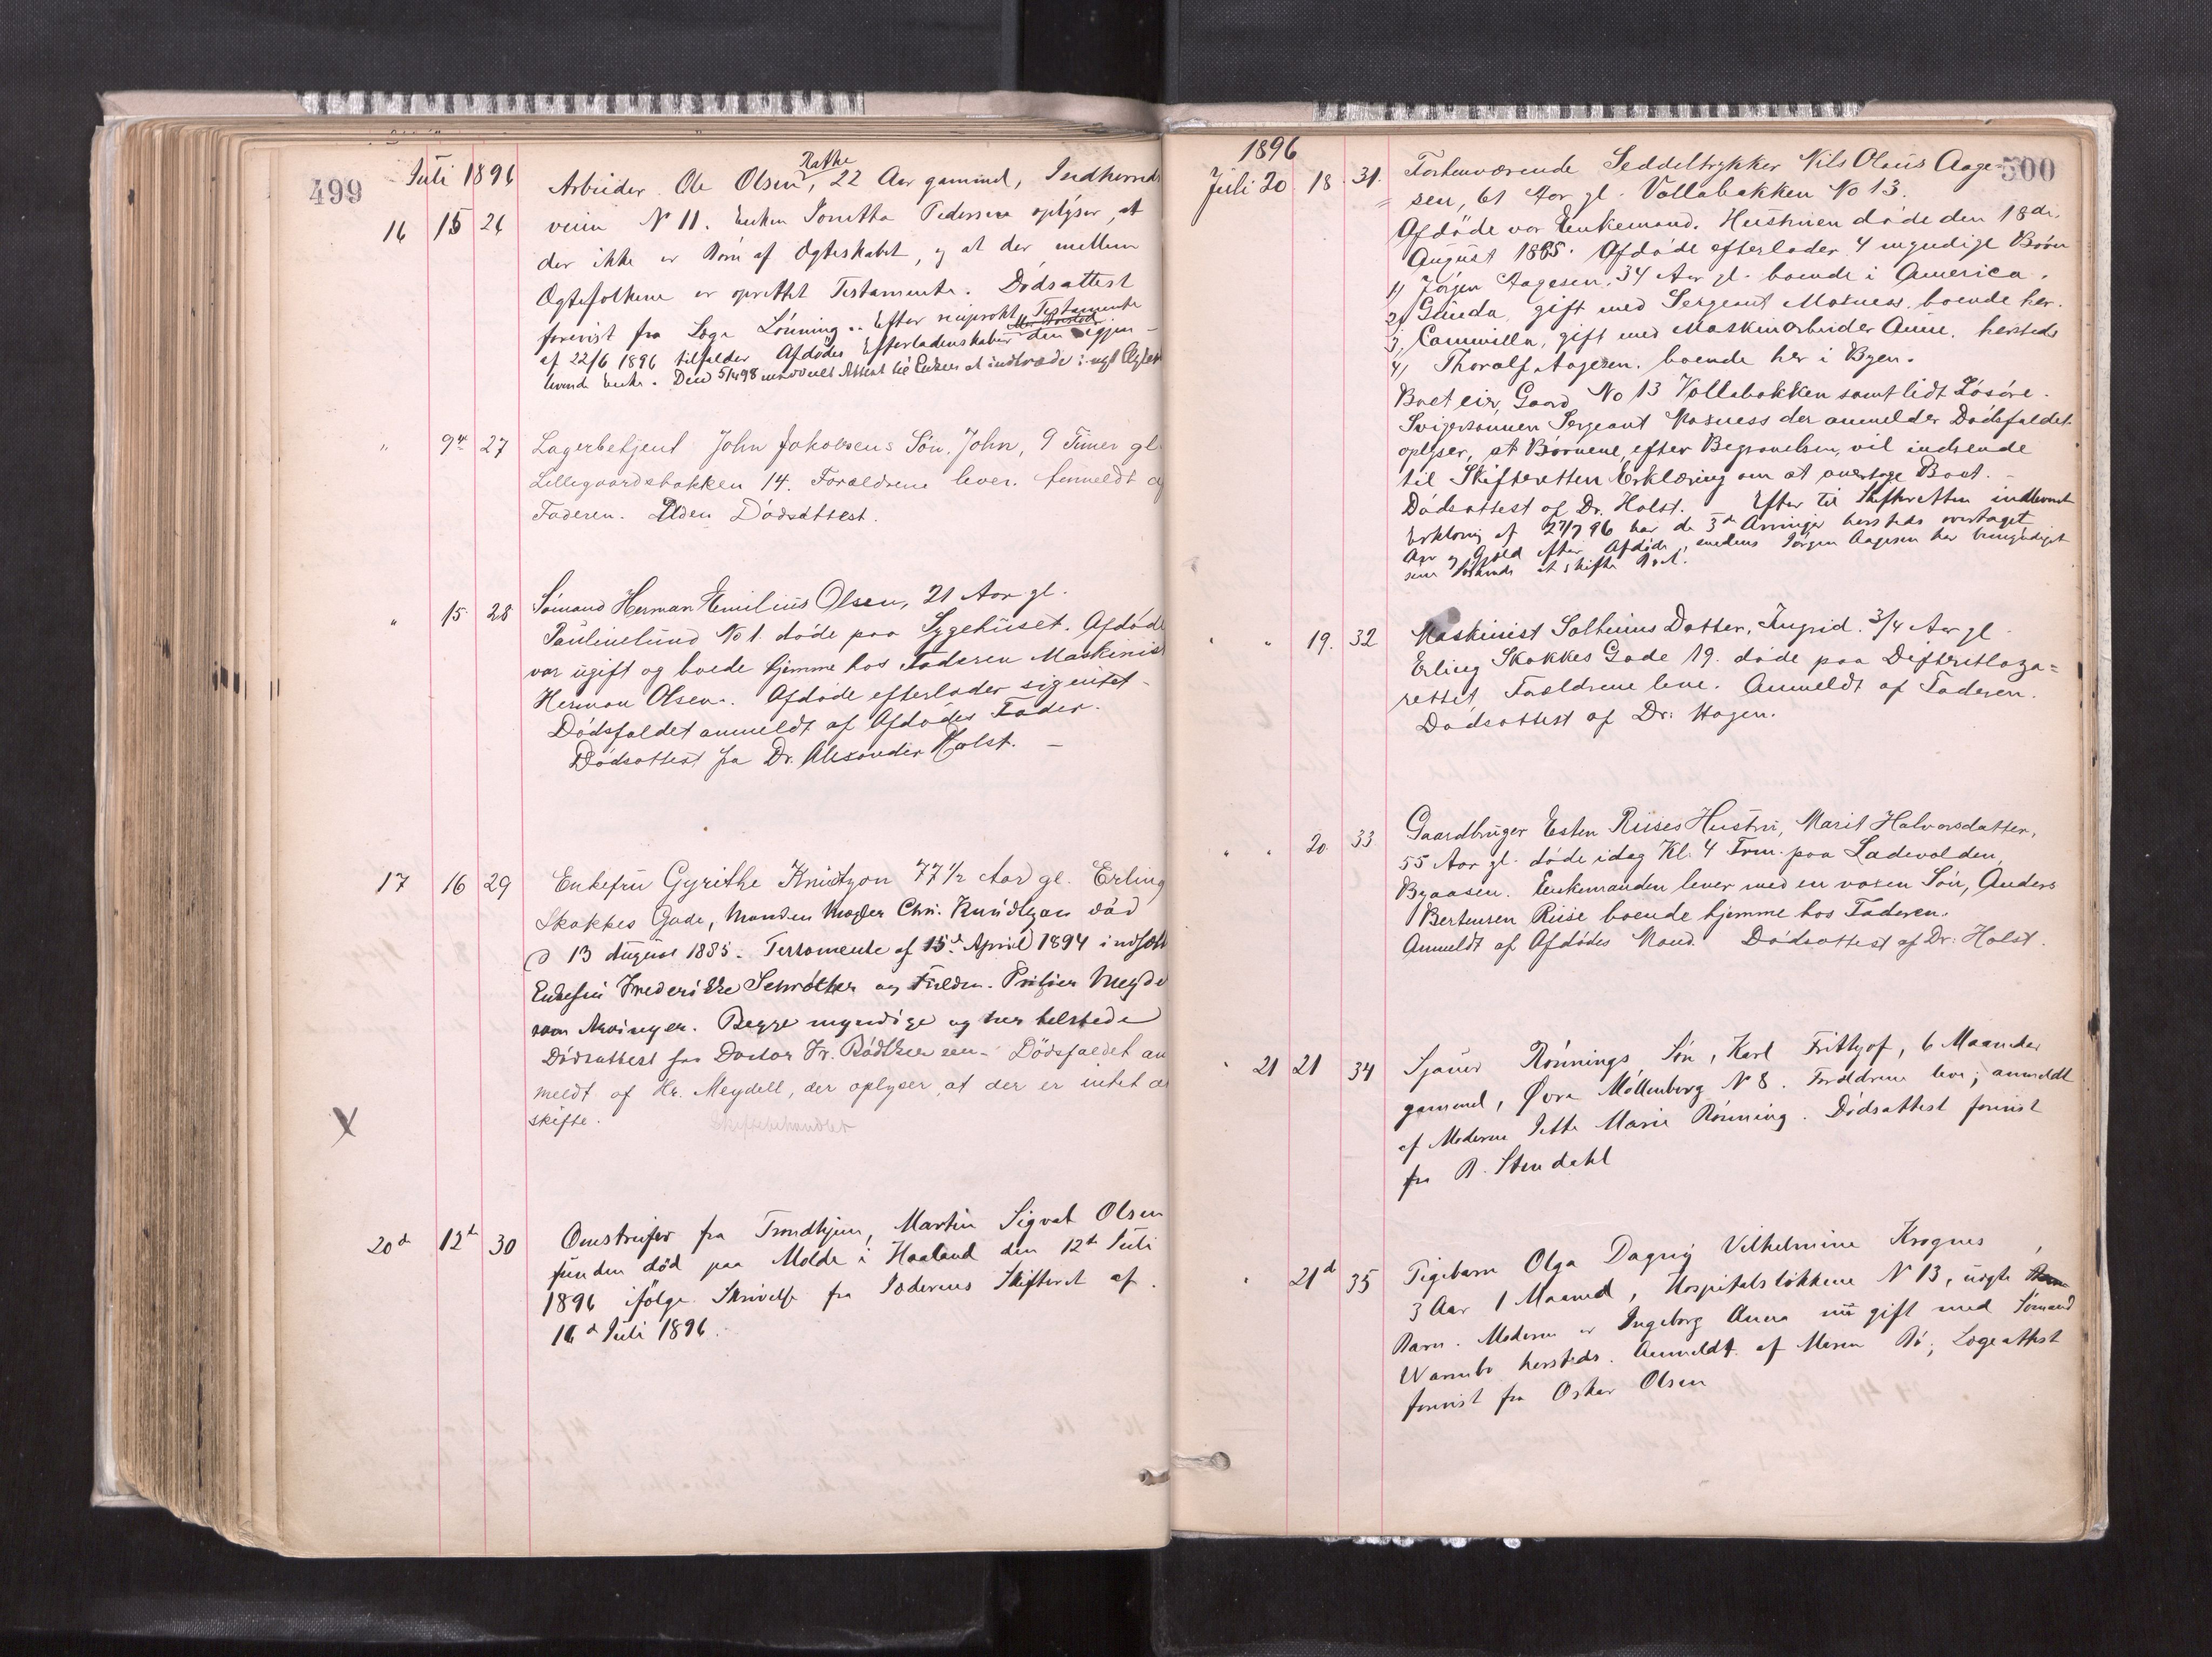 499
Juli 1896
16 15 26 Arbeider Ole Olsen Rathe, 22 Aar gammel, Indherreds
veien N 11. Enken Jonetta Pedersen oplyser, at
der ikke er Børn af Ægteskabet, og at der mellem
Ægtefolkene er oprettet Testamente. Dødsattest
forevist fra Læge Lønning. Efter reciprokt Testamente
af 22/6 1896 tilfalder Afdødes Efterladenskaber den igjen-
levende Enke. Den 5/4 98 meddelt Attest til Enken at indtræde i nyt Ægtesk
" 9de 27 Lagerbetjent John Jakobsens Søn, John, 9 Timer gl.
Lillegaardsbakken 14. Forældrene lever. Anmeldt af
Faderen. Uden Dødsattest.
" 15 28 Sømand Herman Emilius Olsen, 21 Aar gl.
Paulinelund No 1. døde paa Sygehuset. Afdøde
var ugift og boede hjemme hos Faderen Maskinist
Herman Olsen. Afdøde efterlader sig intet-
Dødsfaldet anmeldt af Afdødes Fader.
Dødsattest fra Dr. Alexander Holst. -
17 16 29 Enkefru Gyrithe Knudtzon 77 1/2 Aar gl. Erling
Skakkes Gade, Manden Mægler Chr. Knudtzon død
d 13 August 1885. Testamente af 15de April 1894 indsætt
Enkefru Frederikke Schrøther og Fulldm. Meyde
som Arvinger. Begge myndige og her tilstede
Dødsattest fra Doctor Fr. Bødtker sen. Dødsfaldet an
meldt af Hr. Meydell, der oplyser, at der er intet at
skifte. Skiftebehandlet
X
20d 12te 30 Omstreifer fra Trondhjem, Martin Sigvat Olsen
funden død paa Molde i Haaland den 12te Juli
1896 ifølge Skrivelse fra Jæderens Skifteret af
16d Juli 1896.
500
1896
Juli 20 18. 31. Forhenværende Seddeltrykker Nils Olaus Aage-
sen, 61 Aar gl. Vollabakken No 13.
Afdøde var Enkemand. Hustruen døde den 18de
August 1885. Afdøde efterlader 4 myndige Børn
1, Jørgen Aagesen, 34 Aar gl. boende i America.
2, Gunda, gift med Sergeant Moxness, boende her.
3, Camilla, gift med Maskinarbeider Aune, hersteds
4, Thoralf Aagesen, boende her i Byen.
Boet eier Gaard No 13 Vollabakken samt lidt Løsøre.
Svigersønnen Sergeant Moxness der anmelder Dødsfaldet
oplyser, at Børnene, efter Begravelsen, vil indsende
til Skifteretten Erklæring om at overtage Boet. -
Dødsattest af Dr. Holst. Efter til Skifteretten indleveret
Erklæring af 27/7 96 har de 3de Arvinger hersteds overtaget
Arv og Gjæld efter Afdøde, medens Jørgen Aagesen har bemyndiget
sine Søskende at skifte Boet.
" " 19. 32 Maskinist Solheims Datter, Ingrid. 3/4 Aar gl
Erling Skakkes Gade 19. døde paa Difteritlaza=
rettet, Forældrene leve. Anmeldt af Faderen.
Dødsattest af Dr. Hagen.
" " 20. 33 Gaardbruger Esten Riises Hustru, Marit Halvorsdatter,
55 Aar gl. døde idag Kl. 4 Frm. paa Ladevolden,
Byaasen. Enkemanden lever med en voxen Søn, Anders
Bertensen Riise boende hjemme hos Faderen.
Anmeldt af Afdødes Mand. Dødsattest af Dr. Holst.
" 21 21 34 Sjauer Rønnings Søn, Karl Frithjof, 6 Maaneder
gammel, Øvre Møllenberg N 8. Forældrene leve; anmeldt
af Moderen Jette Marie Rønning. Dødsattest forevist
fra R. Stendahl
" 21d 35 Pigebarn Olga Dagny Vilhelmine Krognes,
3 Aar 1 Maaned, Hospitalsløkkene N 13, uægte
Barn. Moderen er Ingeborg Anna nu gift med Sømand
Warnbo hersteds. Anmeldt af Maren Bø; Lægeattest
forevist fra Oskar Olsen